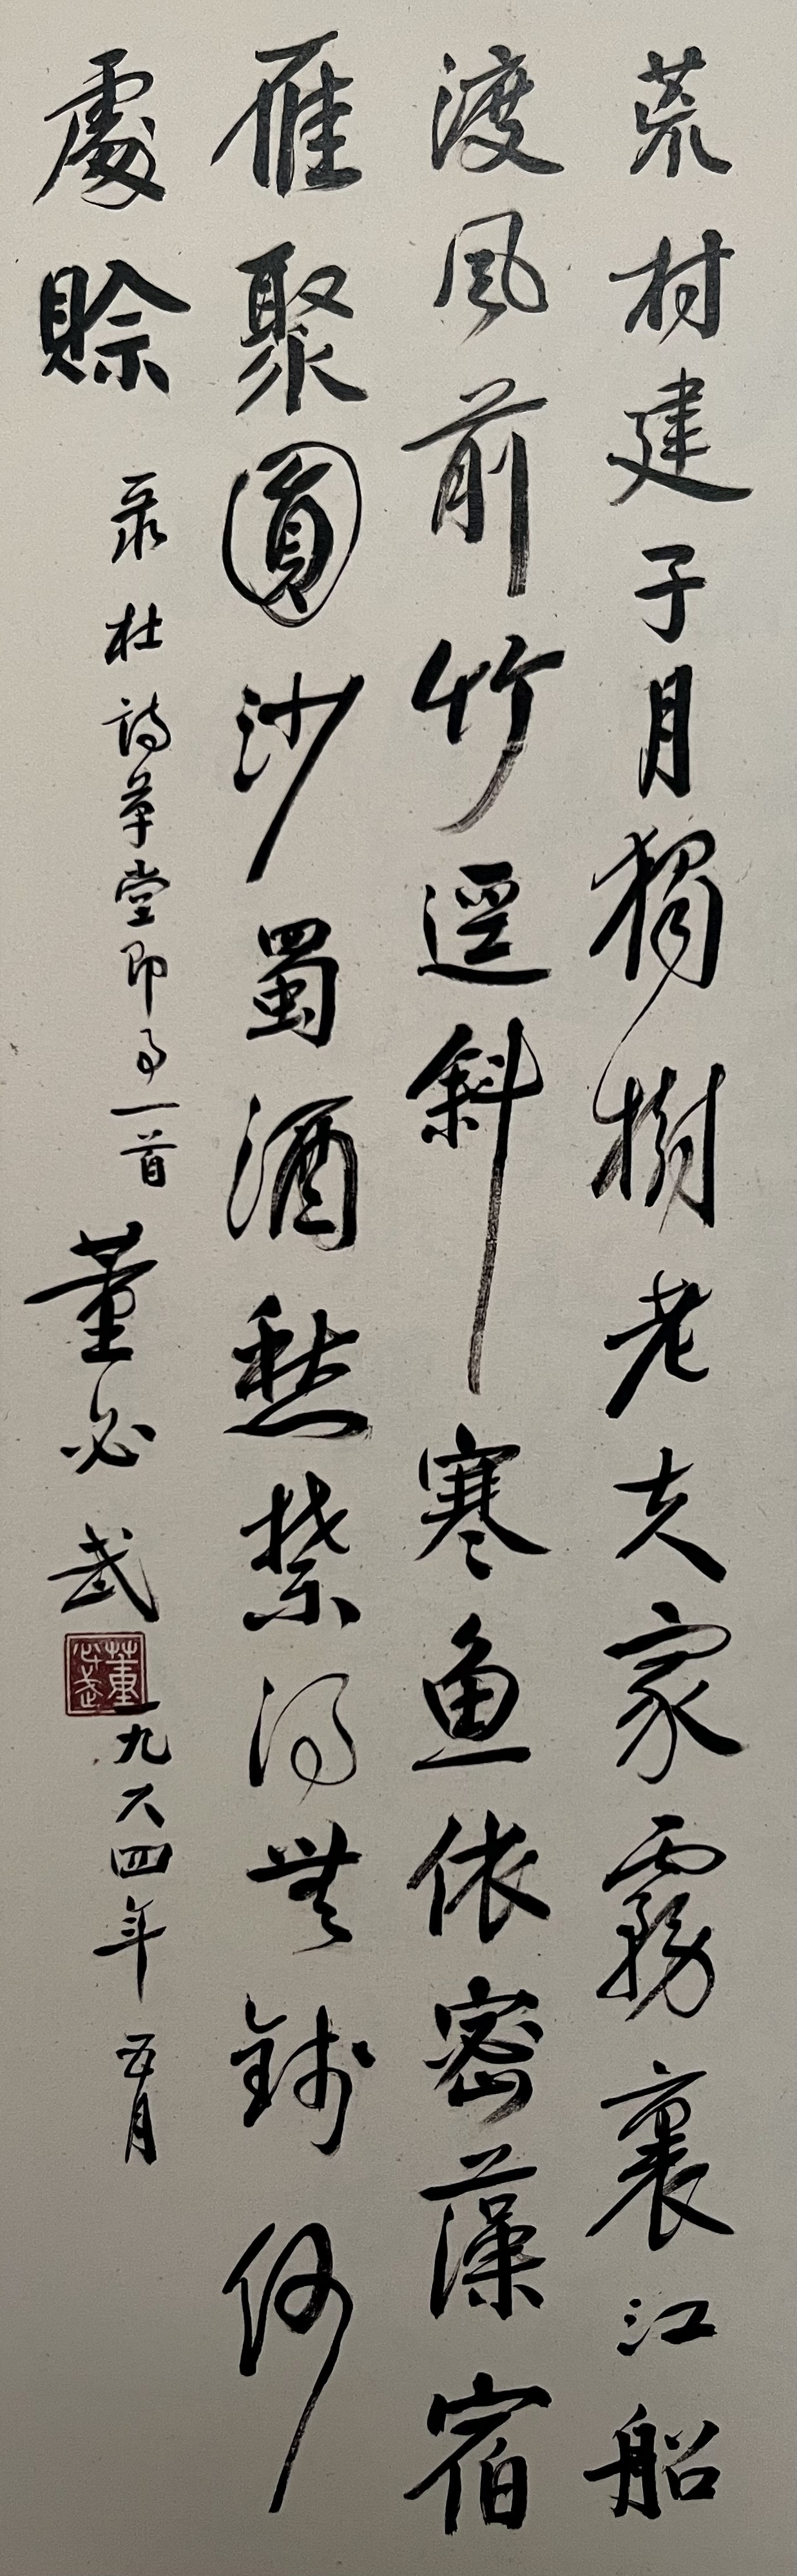 荒村建子月獨樹老夫家霧裏江船
渡風前竹逕斜寒鱼依密藻宿
雁聚圓沙蜀酒愁禁得無錢何
處賒
录杜詩草堂即事一首
董必武
董必武
一九六四年五月